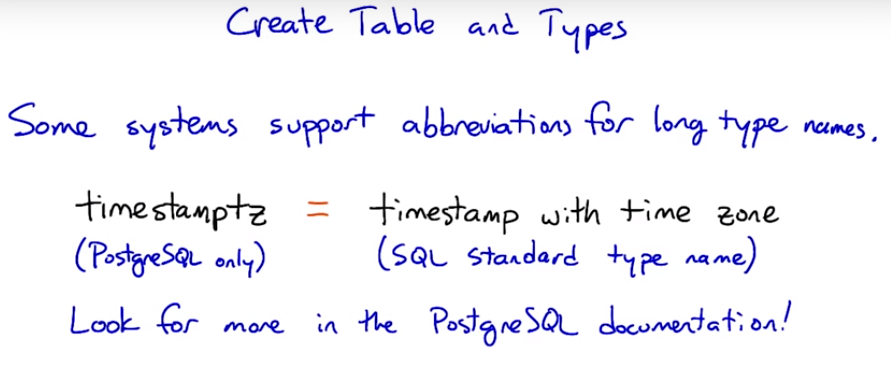 Create Table and Types
Some systems support abbreviations for long type names.
timestamptz = timestamp with time zone
(PostgreSQL only) (SQL standard type name)
Look for more in the PostgreSQL documentation!